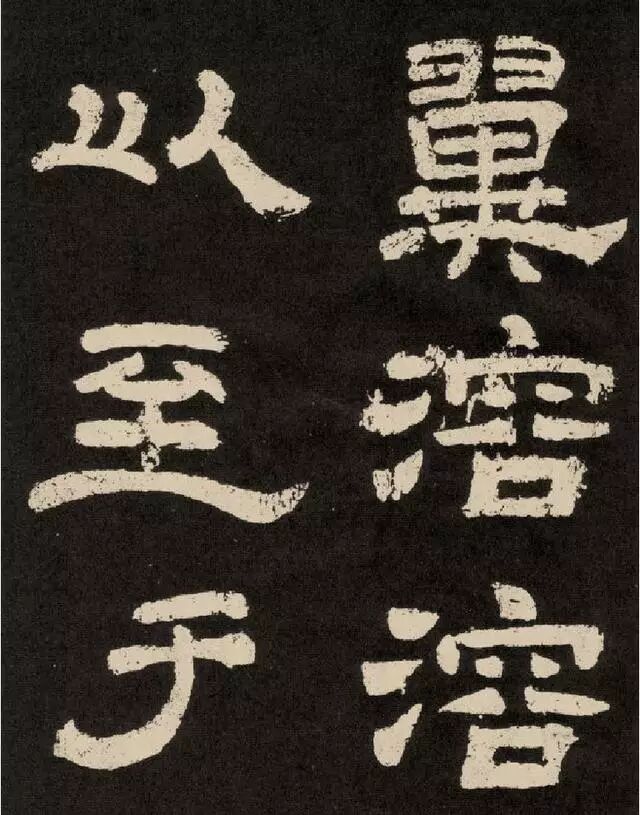 翼溶溶
以至于